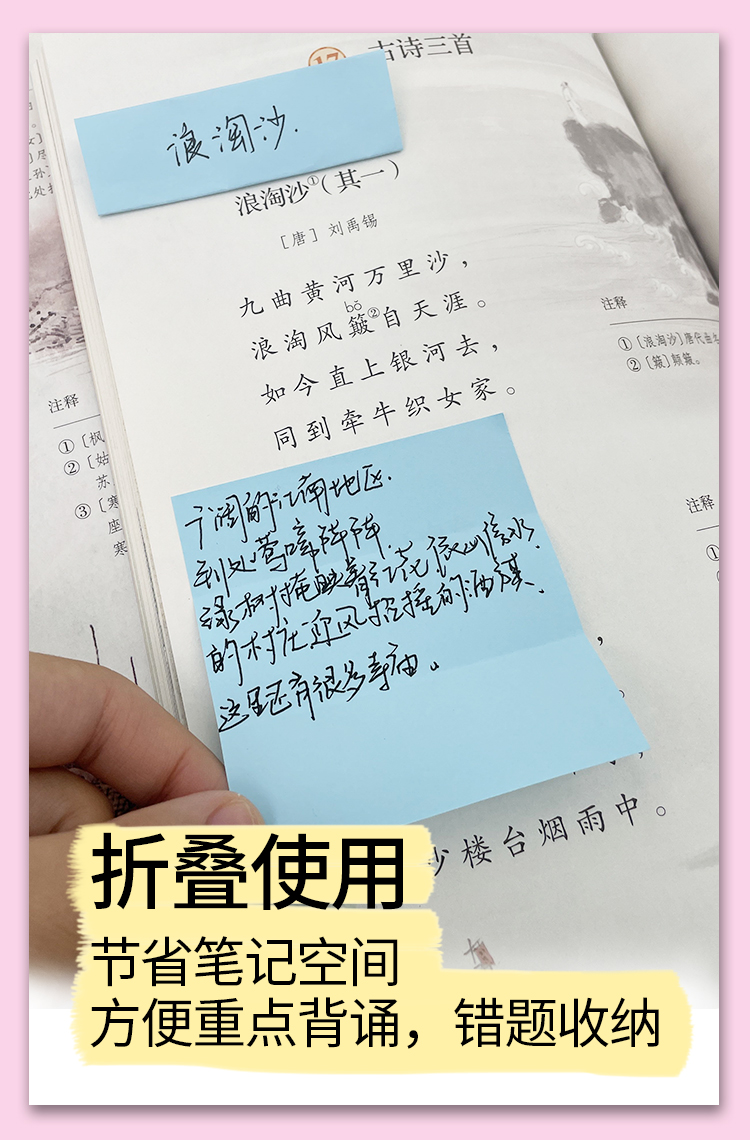 17 古诗三首
浪淘沙.
浪淘沙①(其一)
[唐] 刘禹锡
九曲黄河万里沙,
bǒ
浪淘风簸②自天涯。
如今直上银河去,
同到牵牛织女家。
注释
①[浪淘沙]唐代曲
②[簸]颠簸。
注释
①[枫
②[姑
苏
③[寒
座
寒
注释
①
广阔的江南地区.
到处莺啼阵阵.
绿树掩映着红花.依山傍水.
的村庄迎风招摇的酒旗.
这里还有很多寺庙。
少楼台烟雨中。
折叠使用
节省笔记空间
方便重点背诵，错题收纳